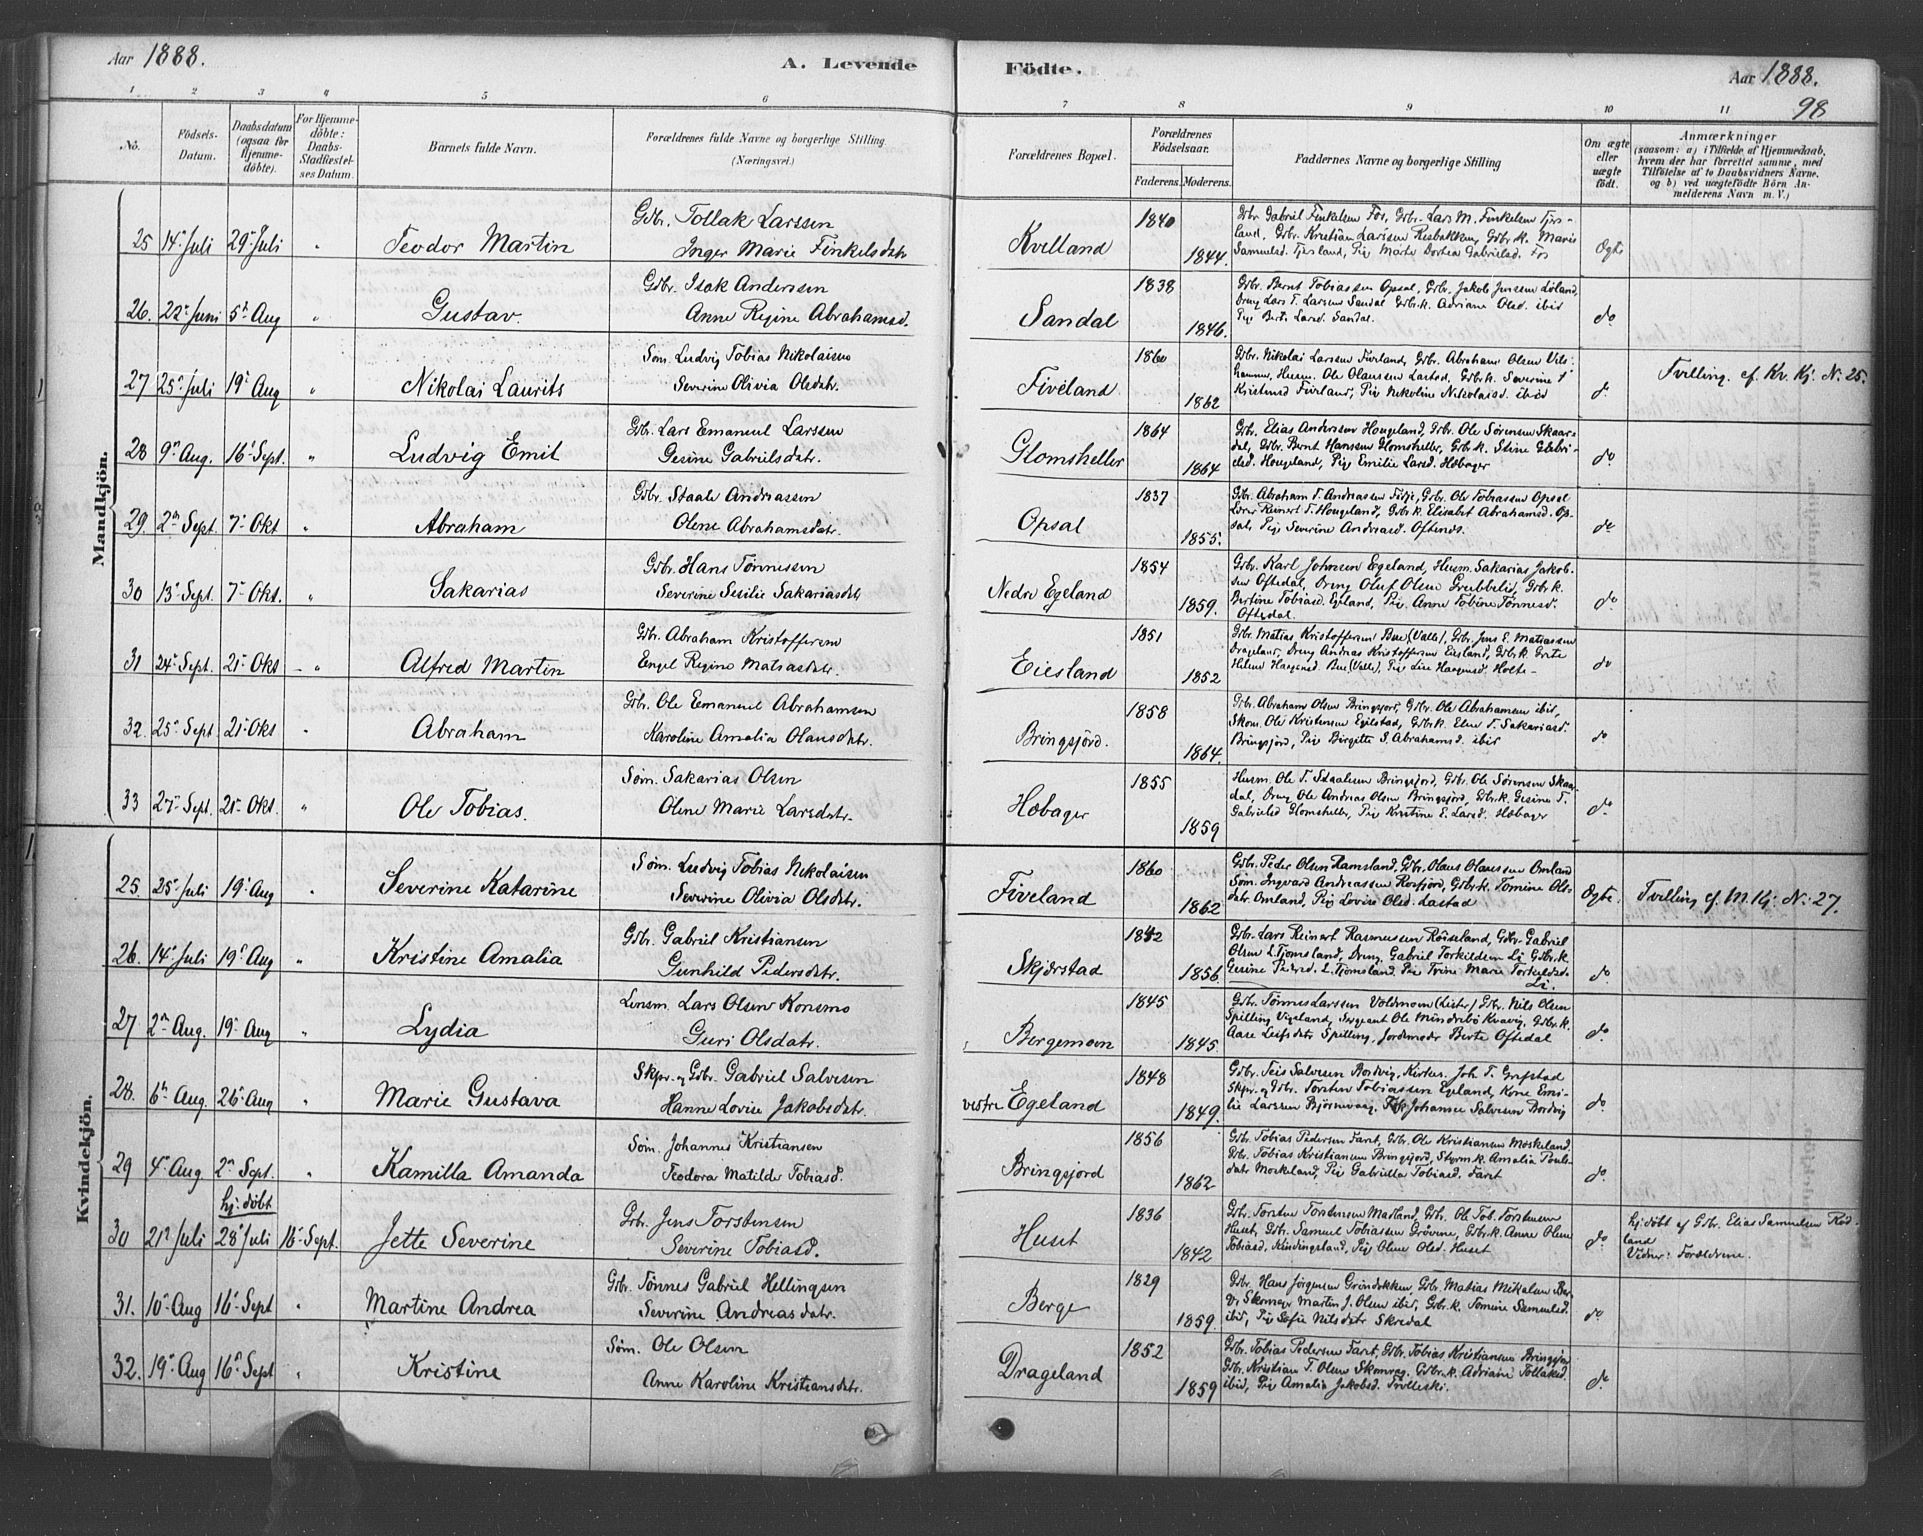 Aar 1888. A. Levende Födte. Aar 1888.
98
1 2 3 4 5 6 7 8 9 10 11
No. Födsels-Datum. Daabsdatum (ogsaa for Hjemme-döbte). For Hjemme-döbte: Daabs-Stadfæstel-ses Datum. Barnets fulde Navn. Forældrenes fulde Navne og borgerlige Stilling (Næringsvei.) Forældrenes Bopæl. Forældrenes Födselsaar. Faderens. Moderens. Faddernes Navne og borgerlige Stilling Om ægte eller uægte födt. Anmærkninger
(saasom: a) i Tilfælde af Hjemmedaab, hvem der har forrettet samme, med Tilföielse af to Daabsvidners Navne, og b) ved uægtefödte Börn An-melderens Navn m. V.)
Mandkjön.
25 14 Juli 29 Juli " Teodor Martin Gdbr. Tollak Larssen
Inger Marie Finkelsdatr Kvelland 1840 1844. Gdbr. Gabriel Finkelsen Fos, Gdbr. Lars M. Finkelsen Tjers-
land, Gdbr. Kristian Larssen Risbakken, Gdbr.k. Marie
Samuelsd. Tjersland, Pig Marte Dortea Gabrielsd. Fos Ægte
26. 22 Juni 5 Aug " Gustav. Gdbr. Isak Anderssen
Anne Regine Abrahamsd. Sandal 1838 1846. Gdbr. Bernt Tobiassen Opsal, Gdbr. Jakob Jenssen Löland,
Dreng Lars T. Larssen Sandal Gdbr.k. Adriane Olsd. ibid
Pig Berte Larsd. Sandal. do
27 25 Juli 19 Aug " Nikolai Laurits Söm. Ludvig Tobias Nikolaisen
Severine Olivia Olsdatr. Fiveland 1860 1862 Gdbr. Nikolai Larssen Fivland, Gdbr. Abraham Olsen
Husm. Ole Olaussen Lastad, Gdbr.k. Severine
Fivland, Pig Nikoline Nikolaisd. ibid do Tvilling. cf. Kv. Kj. N. 25.
28 9 Aug. 16 Sept. " Ludvig Emil Gdbr. Lars Emanuel Larssen
Gesine Gabrielsdatr. Glomsheller 1864 1864 Gdbr. Elias Anderssen Hougeland, Gdbr. Ole Sörensen Skaar-
dal, Gdbr. Bernt Hanssen Glomsheller, Gdbr.k. Stine Gabri-
elsd. Hougeland, Pig Emilie Larsd. Höbager do
29. 2 Sept. 7 Okt " Abraham Gdbr. Staale Andreassen
Olene Abrahamsdatr. Opsal 1837 1855. Gdbr. Abraham T. Andreassen Fidje, Gdbr. Ole Tobiassen Opsal
Lærer Reinert T. Hougeland, Gdbr.k. Elisabet Abrahamsd. Op-
sal, Pig Severine Andreasd. Oftenes. do
30 13 Sept. 7 Okt. " Sakarias Gdbr. Hans Tönnessen
Severine Sesilie Sakariasdatr Nedre Egeland 1854 1859. Gdbr. Karl Johnsen Egeland, Husm. Sakarias Jakob-
sen Oftedal, Dreng Oluf Olsen Grubbelid, Gdbr.k.
Bertine Tobiasd. Egeland, Pig Anne Tobine Tönnesd.
Oftedal. do
31 24 Sept. 21 Okt " Alfred Martin Gdbr. Abraham Kristoffersen
Engel Regine Matiasdatr. Eiesland 1851 1852 Gdbr. Matias Kristoffersen Bue (Valle), Gdbr. Jens E. Matiassen
Drageland, Dreng Andreas Kristoffersen Eiesland, Gdbr.k. Grete
Helene Haagensd. Bue (Valle), Pig Lise Haagensd. Holte do
32. 25 Sept 21 Okt " Abraham Gdbr. Ole Emanuel Abrahamsen
Karoline Amalia Olausdatr. Bringsjörd. 1858 1864. Gdbr. Abraham Olsen Bringsjord, Gdbr. Ole Abrahamsen ibid,
Skom. Ole Kristensen Egilstad, Gdbr.k. Elen T. Sakariasd.
Bringsjörd, Pig Birgitte S. Abrahamsd. ibid do
33 27 Sept. 21 Okt. " Ole Tobias. Söm. Sakarias Olsen
Olene Marie Larsdatr. Höbager 1855 1859 Husm. Ole T. Staalesen Bringsjord, Gdbr. Ole Sörensen Skaar-
dal, Dreng Ole Andreas Olsen Bringsjord, Gdbr.k. Gesine T.
Gabrielsd Glomsheller, Pig Kristine E. Larsd. Höbager do
Kvindekjön.
25. 25 Juli 19 Aug " Severine Katarine Söm. Ludvig Tobias Nikolaisen
Severine Olivia Olsdatr. Fiveland 1860 1862 Gdbr. Peder Olsen Ramsland, Gdbr. Olaus Olaussen Omland
Söm. Ingvard Andreassen Rosfjord, Gdbr.k. Tomine Ols-
datr. Omland, Pig Lovise Olsd. Lastad Ægte. Tvilling cf. M. Kj. N. 27.
26. 14 Juli 19 Aug " Kristine Amalia Gdbr. Gabriel Kristiansen
Gunhild Pedersdatr. Skjerstad 1842 1856. Gdbr. Lars Reinert Rasmussen Röiseland, Gdbr. Gabriel
Olsen L. Tjomsland, Dreng Gabriel Torkildsen Li Gdbr.k.
Gesine Pedersd. L. Tjomsland. Pig Trine Marie Torkildsd.
Li. do
27 2 Aug. 19 Aug " Lydia Lensm. Lars Olsen Konsmo
Guri Olsdatr. Bergemoen 1845 1845. Gdbr. Tönnes Larssen Voldmoen (Lister) Gdbr. Nils Olsen
Spilling Vigeland, Sergeant Ole Mindrebö Kvavig, Gdbr.k.
Aase Leifsdatr Spilling, Jordemodr Berte Oftedal do.
28. 6 Aug. 26 Aug " Marie Gustava Skpr. og Gdbr. Gabriel Salvesen
Hanne Lovise Jakobsdatr. vestre Egeland 1848 1849. Gdbr. Teis Salvesen Bordvig, Kirkes. Joh. T. Grefstad
Skpr. og Gdbr. Torsten Tobiassen Egeland, Kone Emi-
lie Larssen Björnevaag, Johanne Salvesen Bordvig do.
29 4 Aug 2 Sept. " Kamilla Amanda Söm. Johannes Kristiansen
Teodora Matilde Tobiasd. Bringsjord 1856 1862 Gdbr. Tobias Pedersen Faret, Gdbr. Ole Kristiansen Moskeland
Gdbr. Tobias Kristiansen Bringsjord, Styrm.k. Amalia Pouls-
datr Moskeland, Pig Gabriella Tobiasd. Faret do.
30 21 Juli hj. döbt 28 Juli 16 Sept. Jette Severine Gdbr. Jens Torstensen
Severine Tobiasd. Huset 1836 1842 Gdbr. Torsten Torstensen Masland, Gdbr. Ole Tob. Torstensen
Huset, Gdbr. Samuel Tobiassen Grövine, Gdbr.k. Anne Olene
Tobiasd. Kindingsland, Pig Olene Olsd. Huset do. hj. döbt af Gdbr. Elias Samuelsen Röd-
land
Vidner: Forældrene.
31. 10 Aug 16 Sept " Martine Andrea Gdbr. Tönnes Gabriel Hellingsen
Severine Andreasdatr. Berge 1829 1859. Gdbr. Hans Jörgensen Gröndokken Gdbr. Matias Mikalsen Ber-
ge, Skomager Martin J. Olsen ibid, Gdbr.k. Tomine Samuelsd.
ibid, Pig Sofie Nilsdatr Skredal do.
32. 19 Aug 16 Sept " Kristine Söm. Ole Olsen
Anne Karoline Kristiansdatr. Drageland 1852 1859 Gdbr. Tobias Pedersen Faret, Gdbr. Tobias Kristiansen Bringsjor
Gdbr. Kristian T. Olsen Skomrag. Gdbr.k. Adriane Tollaksd.
ibid, Pig Amalia Jakobsd. do.